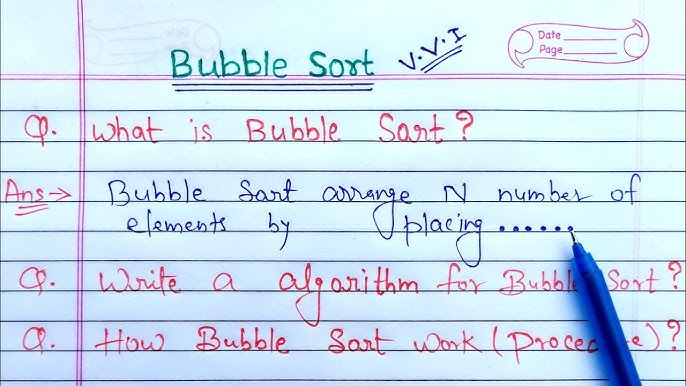 Date
Page
Bubble Sort V.V.I
Q. What is Bubble Sort?
Ans→ Bubble Sort arrange N number of
elements by placing ......
Q. Write a algorithm for Bubble Sort?
Q. How Bubble Sort work (Procedure)?